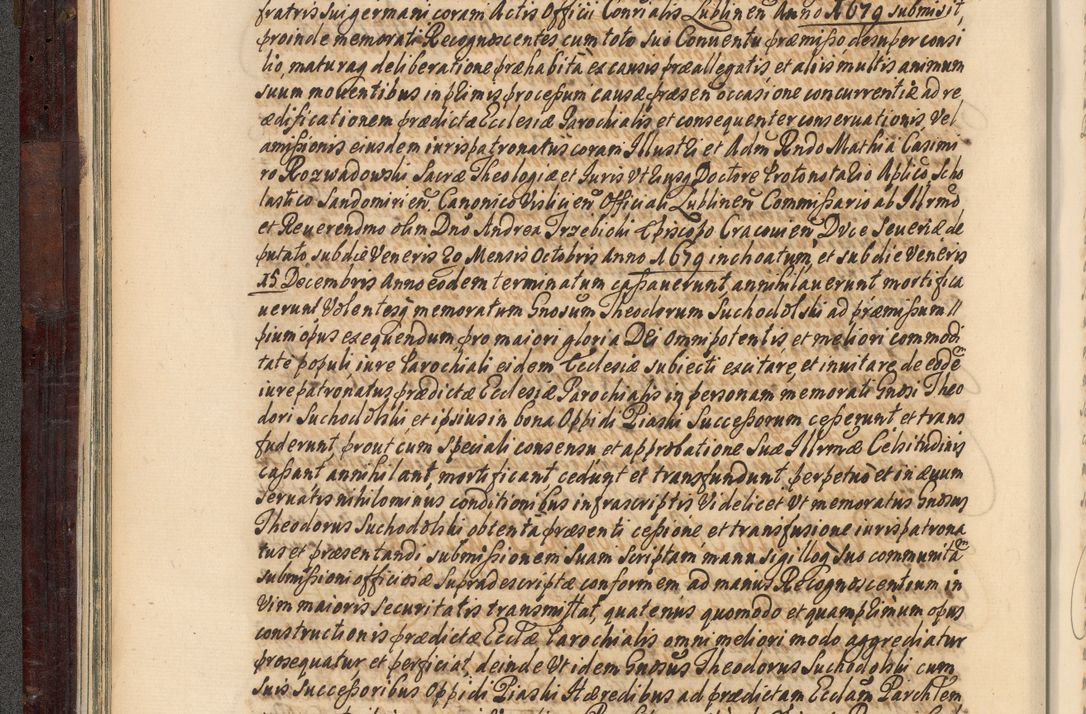 fratris sui germani coram Actis Officii Conrialis Lublinen Anno 1679 submisit,
proinde memorati Recognoscentes cum toto suo Conventu præmisso desuper consi
lio, maturaq deliberatione præhabita ex causis præallegatis, et aliis multis animum
suum moventibus inprimis processum causæ præsen occasione concurrentiæ ad re
ædificationem prædictæ Ecclesiæ Parochialis et consequenter conservationis, Vel
amissionis eiusdem iurispatronatus coram Illustri et Adm Rndo Mathia Casimi
ro Rozwadowski Sacræ Theologiæ et Iuris Vtriusq Doctore Protonotario Aplico Scho
lastico Sandomirien, Canonico Vislicien Officiali Lublinen Commissario ab Illrmo
et Reverendmo olim Dno Andrea Trzebicki Episcopo Cracovien, Duce Severiæ de
putato sub die Veneris 20 Mensis Octobris Anno 1679 inchoatum, et sub die Veneris
15 Decembris Anno eodem terminatum cassaverunt annihilaverunt mortifica
verunt Volentesq memoratum Gnosum Theodorum Suchodolski ad præmissum //
pium opus exequendum pro maiori gloria Dei Omnipotentis et meliori commodi
tate populi iure Parochiali eidem Ecclesiæ subiecti excitare, et invitare, de eode
iurepatronatus prædictæ Ecclesiæ Parochialis in personam memorati Gnosi Theo
dori Suchodolski et ipsius in bona Oppidi Piaski Successorum cesserunt et trans
fuderunt, prout cum speciali consensu et approbatione Suæ Illrmæ Celsitudinis
cassant annihilant, mortificant cedunt et transfundunt perpetuo et in ævum
servatis nihilominus conditionibus infrascriptis Videlicet Vt memoratus Gnosus
Theodorus Suchodolski obtenta præsenti cessione et transfusione iurispatrona
tus et præsentandi submissionem suam scriptam manu sigilloq suo communitam
submissioni officiosæ supradescriptæ conformem ad manus Recognoscentium in
Vim maioris securitatis transmittat, quatenus quomodo et quamprimum opus
constructionis prædictæ Ecclæ Parochialis omni meliori modo aggrediatur
prosequatur et perficiat, deinde Vt idem Gnosus Theodorus Suchodolski cum
suis Successoribus Oppidi Piaski Hæredibus ad prædictam Ecclam Parchlem